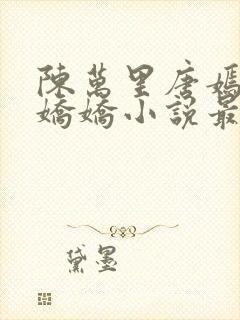 陳萬里唐嫣
嬌嬌小說最
黛墨